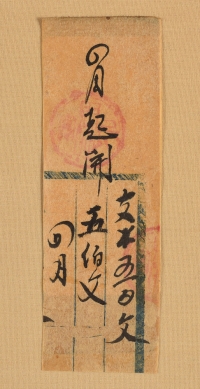 四月起開
支本五百文
五佰文
四月